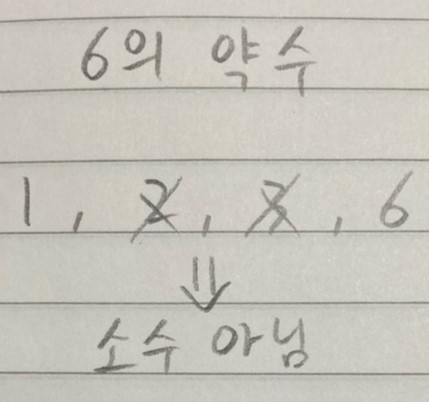 6의 약수
1, 2, 3, 6
⇓
소수 아님